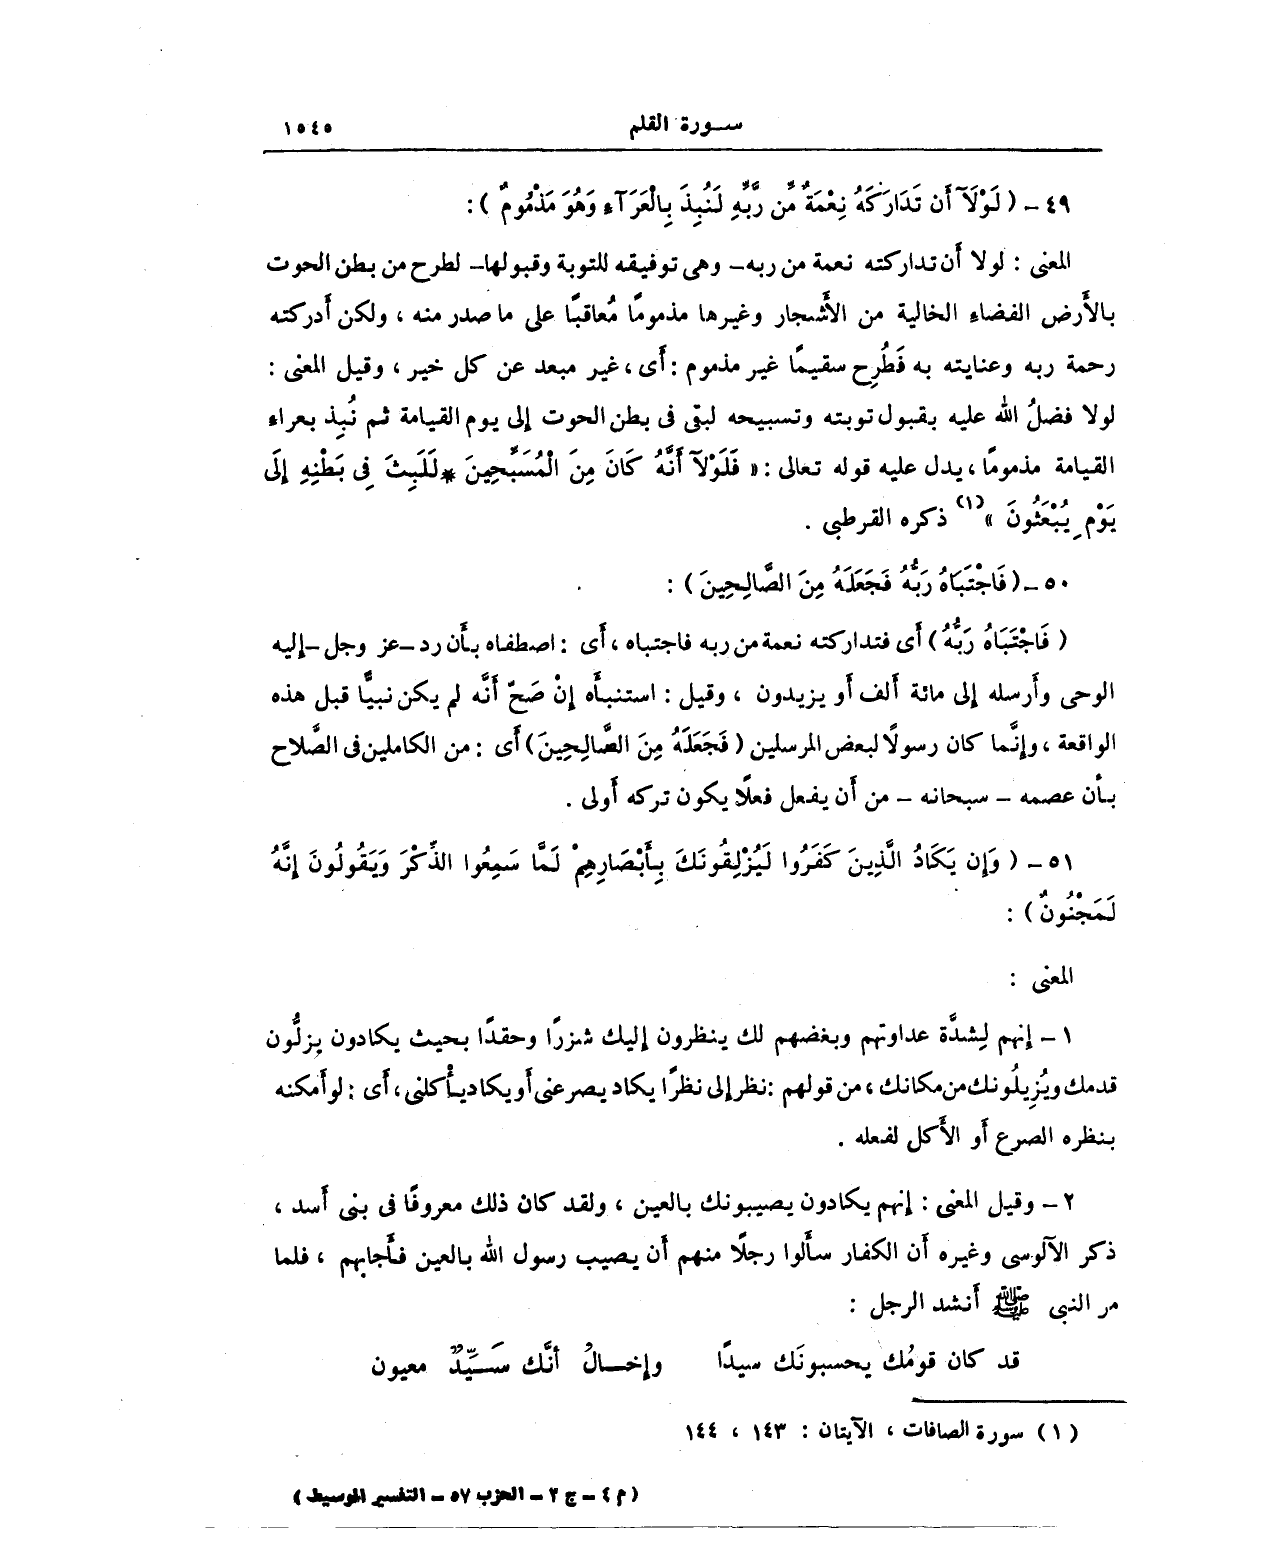 سورة القلم ١٥٤٥
٤٩ - ( لَوْلَآ أَن تَدَارَكَهُ نِعْمَةٌ مِّن رَّبِّهِ لَنُبِذَ بِالْعَرَآءِ وَهُوَ مَذْمُومٌ ) :
المعنى : لولا أن تداركته نعمة من ربه – وهى توفيقه للتوبة وقبولها – لطرح من بطن الحوت
بالأَرض الفضاء الخالية من الأَشجار وغيرها مذمومًا مُعاقبًا على ما صدر منه ، ولكن أدركته
رحمة ربه وعنايته به فَطُرِح سقيمًا غير مذموم : أَى ، غير مبعد عن كل خير ، وقيل المعنى :
لولا فضلُ الله عليه بقبول توبته وتسبيحه لبقى فى بطن الحوت إلى يوم القيامة ثم نُبِذ بعراء
القيامة مذمومًا ، يدل عليه قوله تعالى : « فَلَوْلَآ أَنَّهُ كَانَ مِنَ الْمُسَبِّحِينَ * لَلَبِثَ فِى بَطْنِهِ إِلَى
يَوْمِ يُبْعَثُونَ » (١) ذكره القرطبى .
٥٠ - ( فَاجْتَبَاهُ رَبُّهُ فَجَعَلَهُ مِنَ الصَّالِحِينَ ) :
( فَاجْتَبَاهُ رَبُّهُ ) أَى فتداركته نعمة من ربه فاجتباه ، أَى : اصطفاه بأَن رد – عز وجل – إليه
الوحى وأَرسله إلى مائة أَلف أَو يزيدون ، وقيل : استنبأَه إنْ صَحَّ أَنَّه لم يكن نبيًّا قبل هذه
الواقعة ، وإِنَّما كان رسولًا لبعض المرسلين ( فَجَعَلَهُ مِنَ الصَّالِحِينَ ) أَى : من الكاملين فى الصَّلاح
بأَن عصمه – سبحانه – من أَن يفعل فعلًا يكون تركه أَولى .
٥١ - ( وَإِن يَكَادُ الَّذِينَ كَفَرُوا لَيُزْلِقُونَكَ بِأَبْصَارِهِمْ لَمَّا سَمِعُوا الذِّكْرَ وَيَقُولُونَ إِنَّهُ
لَمَجْنُونٌ ) :
المعنى :
١ - إنهم لِشدَّة عداوتهم وبغضهم لك ينظرون إليك شزرًا وحقدًا بحيث يكادون يزلُّون
قدمك ويُزيلُونك من مكانك ، من قولهم : نظر إلى نظرًا يكاد يصرعنى أَو يكاد يأْكلنى ، أَى : لو أَمكنه
بنظره الصرع أَو الأَكل لفعله .
٢ - وقيل المعنى : إنهم يكادون يصيبونك بالعين ، ولقد كان ذلك معروفًا فى بنى أَسد ،
ذكر الآلوسى وغيره أَن الكفار سأَلوا رجلًا منهم أَن يصيب رسول الله بالعين فأَجابهم ، فلما
مر النبى ﷺ أَنشد الرجل :
قد كان قومُك يحسبونَك سيدًا وإخالُ أنَّك سَيِّدٌ معيون
(١) سورة الصافات ، الآيتان : ١٤٣ ، ١٤٤
( م ٤ - ج ٣ - الحزب ٥٧ - التفسير الوسيط )